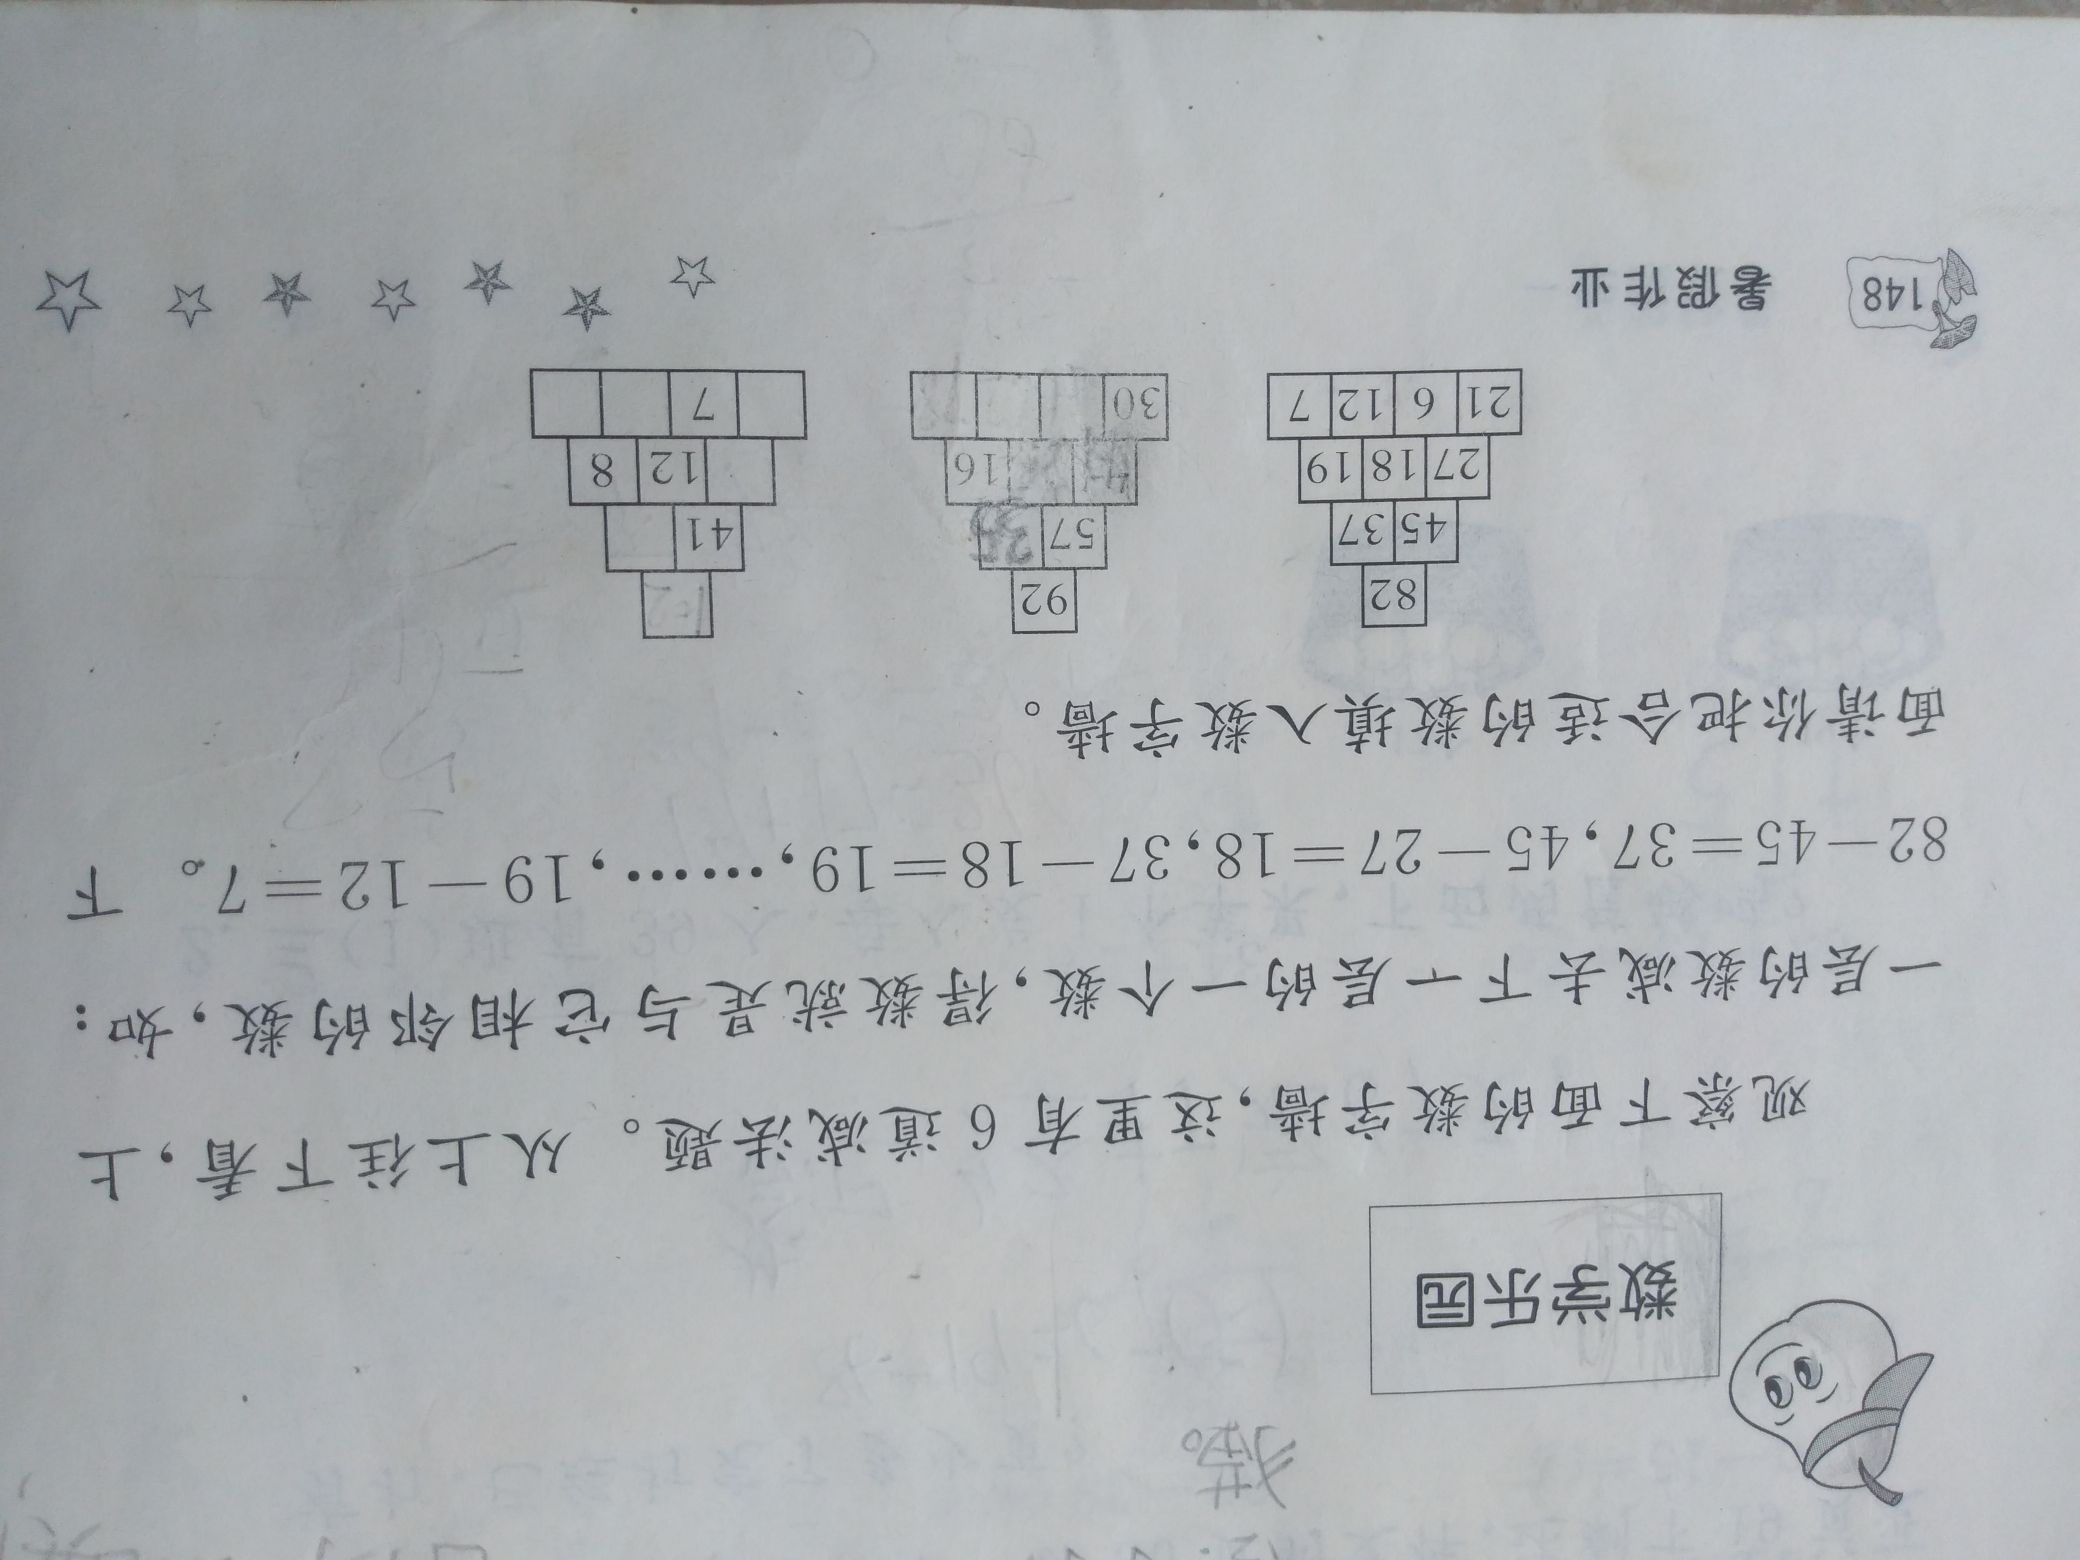 猫。
数学乐园
观察下面的数字墙,这里有6道减法题。从上往下看,上
一层的数减去下一层的一个数,得数就是与它相邻的数,如:
82-45=37,45-27=18,37-18=19,……,19-12=7。下
面请你把合适的数填入数字墙。
82 92
45 37 57 35 41
27 18 19 16 12 8
21 6 12 7 30 7
148 暑假作业